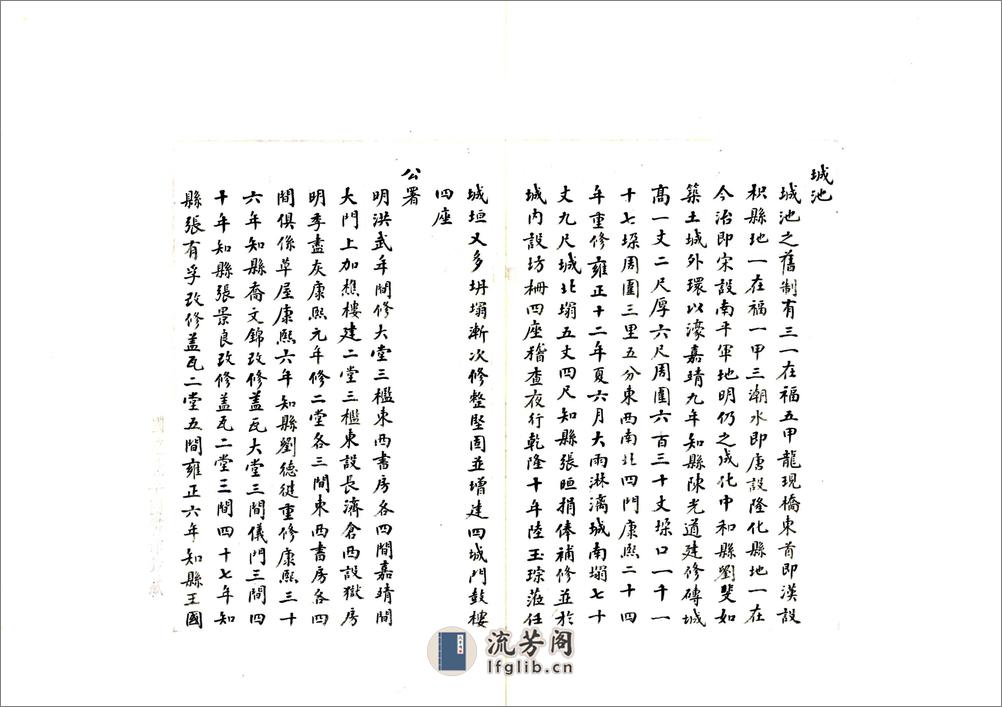 城池
城池之舊制有三一在福五甲龍現橋東首即漢設
枳縣地一在福一甲三潮水即唐設隆化縣地一在
今治即宋設南平軍地明仍之成化中和縣劉斐如
築土城外環以濠嘉靖九年知縣陳光道建修磚城
高一丈二尺厚六尺周圍六百三十丈垜口一千一
十七垜周圍三里五分東西南北四門康熙二十四
年重修雍正十二年夏六月大雨淋漓城南塌七十
丈九尺城北塌五丈四尺知縣張晅捐俸補修並於
城內設坊柵四座稽查夜行乾隆十年陸玉琮蒞任
城垣又多坍塌漸次修整堅固並增建四城門鼓樓
四座
公署
明洪武年間修大堂三楹東西書房各四間嘉靖間
大門上加樵樓建二堂三楹東設長濟倉西設獄房
明季盡灰康熙元年修二堂各三間東西書房各四
間俱係草屋康熙六年知縣劉德徤重修康熙三十
六年知縣喬文錦改修蓋瓦大堂三間儀門三間四
十年知縣張景良改修蓋瓦二堂三間四十七年知
縣張有孚改修蓋瓦二堂五間雍正六年知縣王國
流芳阁
lfglib.cn